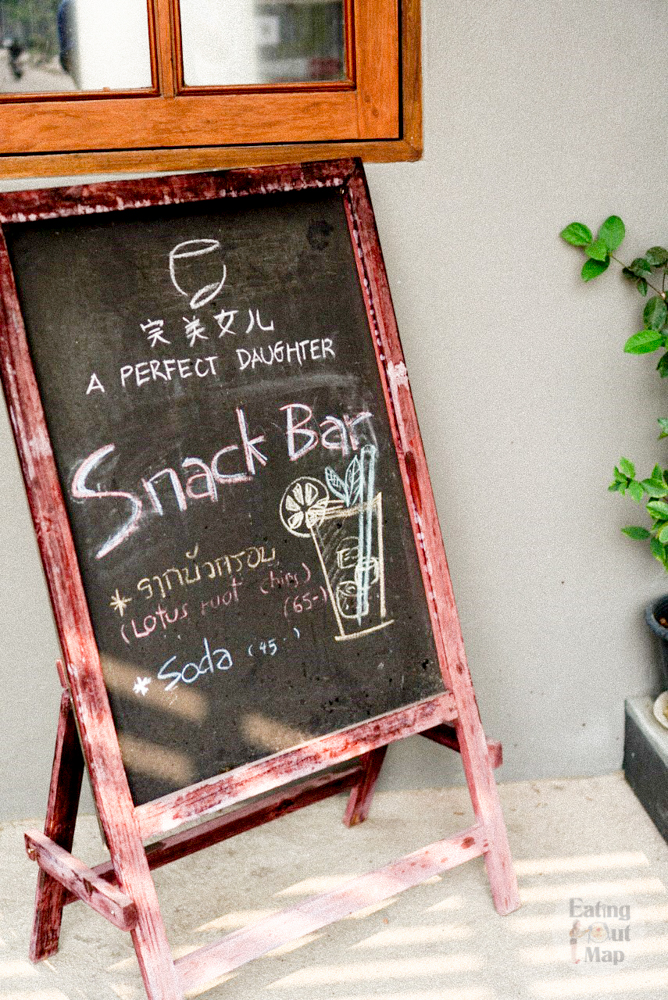 完美女儿
A PERFECT DAUGHTER
Snack Bar
* รากบัวกรอบ
(Lotus root chips)
(65-)
* Soda (45-)
Eating
Out
Map